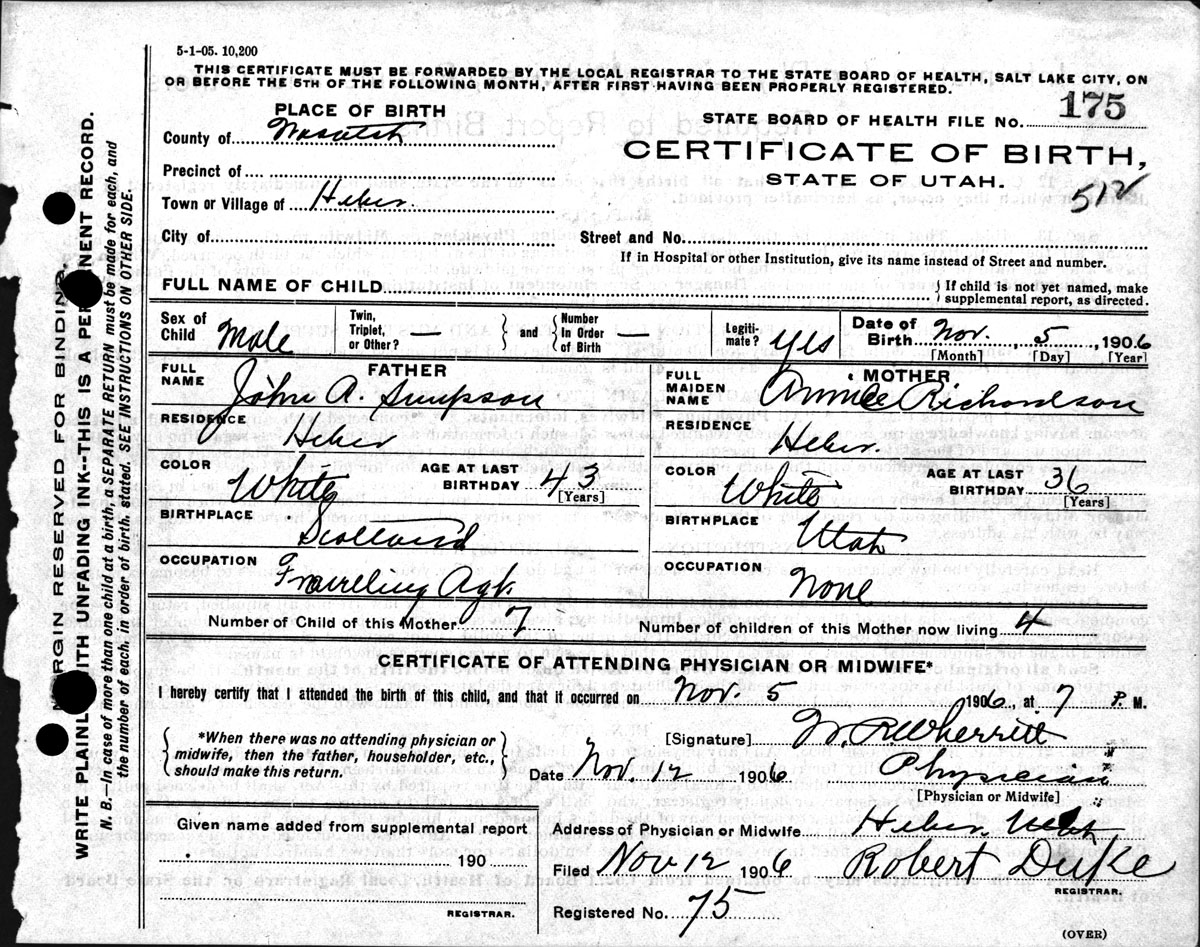 5-1-05. 10,200
THIS CERTIFICATE MUST BE FORWARDED BY THE LOCAL REGISTRAR TO THE STATE BOARD OF HEALTH, SALT LAKE CITY, ON
OR BEFORE THE 5TH OF THE FOLLOWING MONTH, AFTER FIRST HAVING BEEN PROPERLY REGISTERED.
PLACE OF BIRTH
STATE BOARD OF HEALTH FILE NO. 175
County of Wasatch
CERTIFICATE OF BIRTH,
Precinct of
STATE OF UTAH.
512
Town or Village of Heber.
City of
Street and No.
If in Hospital or other Institution, give its name instead of Street and number.
FULL NAME OF CHILD
{ If child is not yet named, make
supplemental report, as directed.
Sex of Child Male
Twin, Triplet, or Other? —
} and {
Number In Order of Birth
Legiti-mate? yes
Date of Birth Nov. 5, 1906
[Month] [Day] [Year]
FATHER
FULL NAME John A. Simpson
RESIDENCE Heber
COLOR White
AGE AT LAST BIRTHDAY 43 [Years]
BIRTHPLACE Scotland
OCCUPATION Traveling Agt.
MOTHER
FULL MAIDEN NAME Annie Richardson
RESIDENCE Heber.
COLOR White
AGE AT LAST BIRTHDAY 36 [Years]
BIRTHPLACE Utah
OCCUPATION None
Number of Child of this Mother 7
Number of children of this Mother now living 4
CERTIFICATE OF ATTENDING PHYSICIAN OR MIDWIFE*
I hereby certify that I attended the birth of this child, and that it occurred on Nov. 5 1906, at 7 P. M.
{ *When there was no attending physician or
midwife, then the father, householder, etc.,
should make this return. }
[Signature] W. R. Wherritt
Date Nov. 12 1906
Physician
[Physician or Midwife]
Given name added from supplemental report
190
REGISTRAR.
Address of Physician or Midwife Heber, Utah
Filed Nov 12 1906 Robert Duke
REGISTRAR.
Registered No. 75
(OVER)
MARGIN RESERVED FOR BINDING.
WRITE PLAINLY WITH UNFADING INK--THIS IS A PERMANENT RECORD.
N. B.—In case of more than one child at a birth, a SEPARATE RETURN must be made for each, and
the number of each, in order of birth, stated. SEE INSTRUCTIONS ON OTHER SIDE.